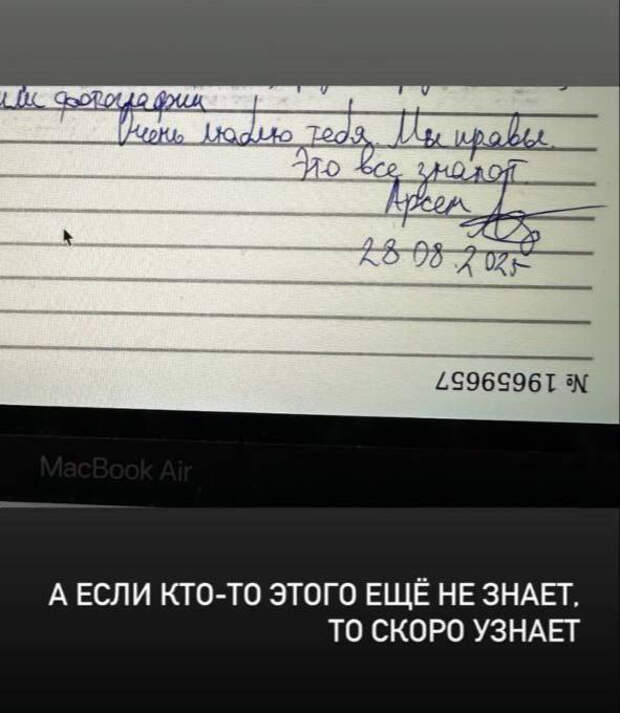 или фотографии
Очень люблю тебя. Мы правы.
Это все знают.
Арсен
28.08.2025
№ 19659657
MacBook Air
А ЕСЛИ КТО-ТО ЭТОГО ЕЩЁ НЕ ЗНАЕТ,
ТО СКОРО УЗНАЕТ